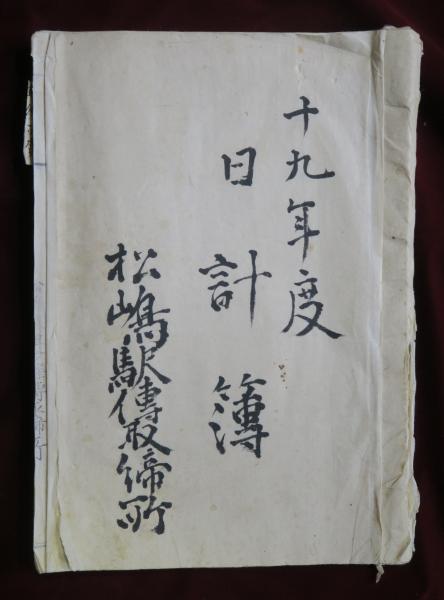 十九年度
日計簿
松嶋駅傳取締所